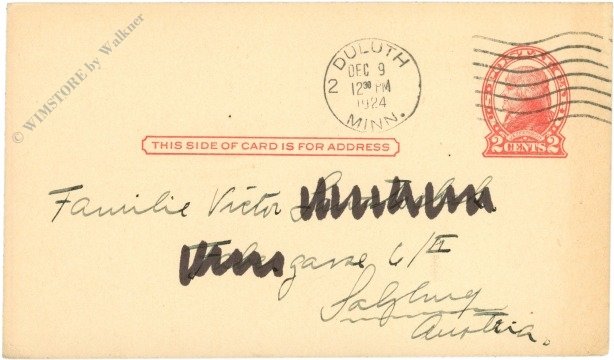 © WIMSTORE by Walkner
DULUTH
DEC 9
12 30 PM
1924
MINN.
2
2 CENTS 2
THIS SIDE OF CARD IS FOR ADDRESS
Familie Victor
gasse 6/II
Salzburg
Austria.